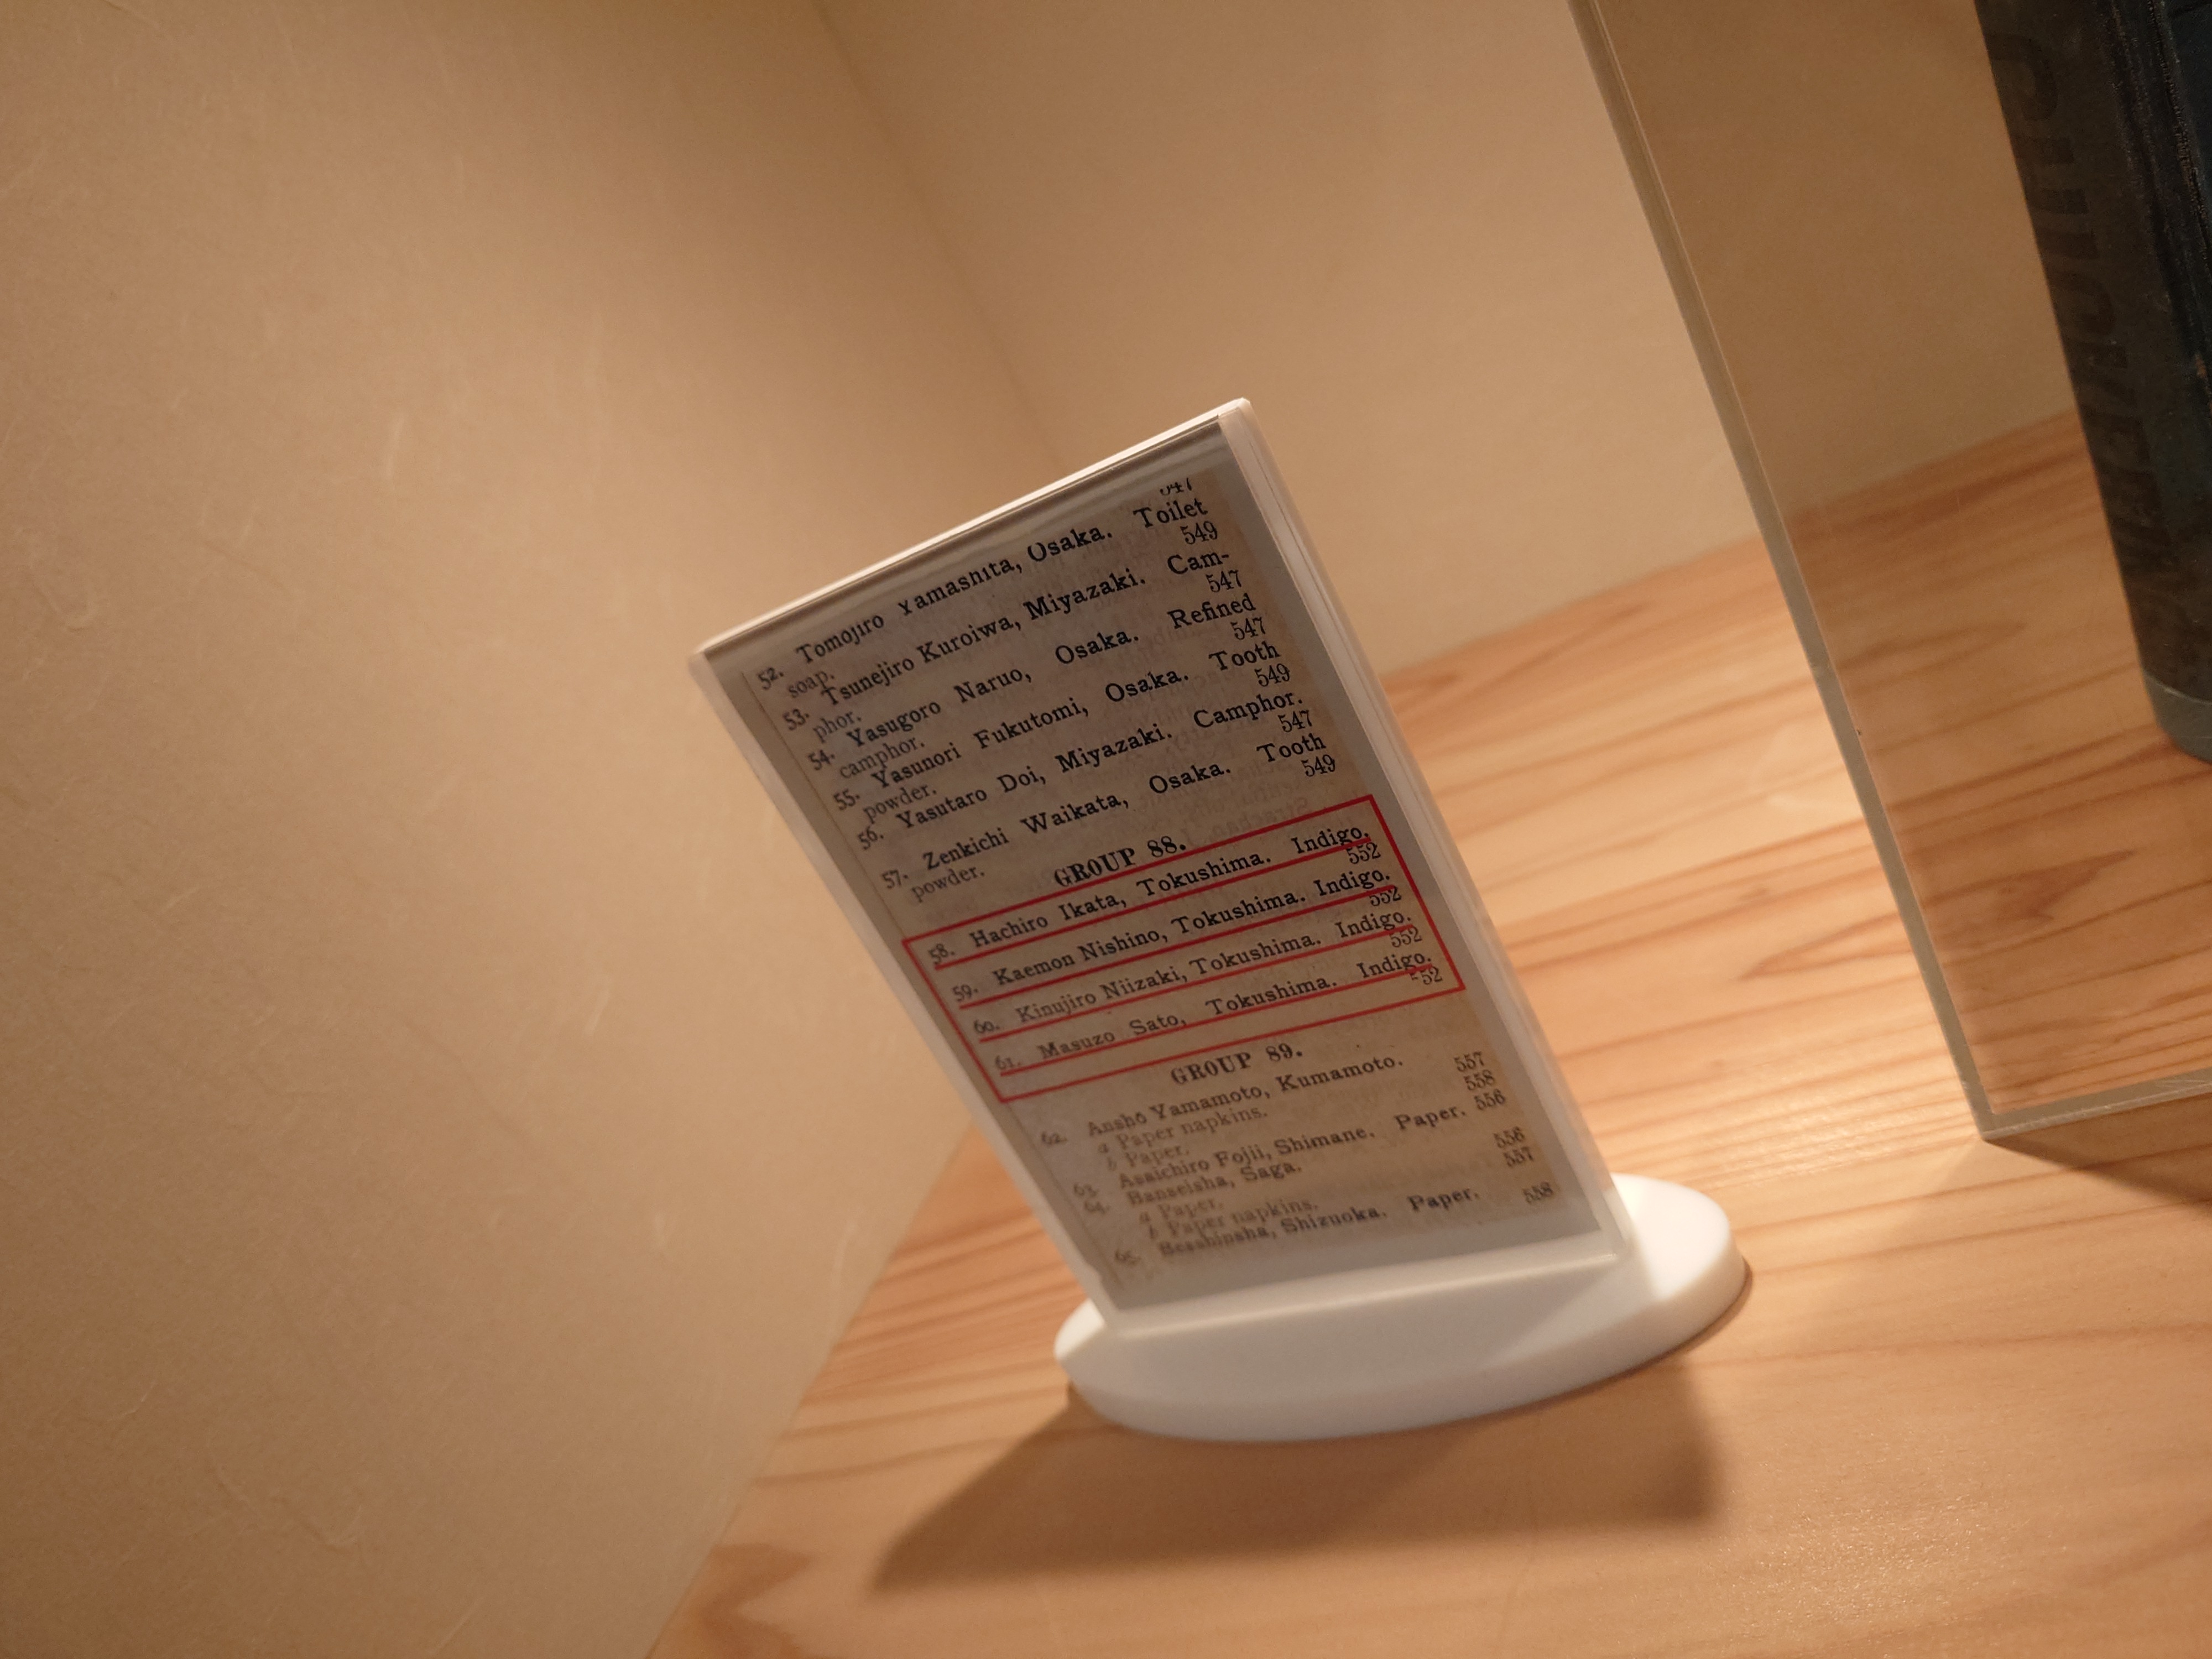 547
52. Tomojiro Yamashita, Osaka. Toilet
soap. 549
53. Tsunejiro Kuroiwa, Miyazaki. Cam-
phor. 547
54. Yasugoro Naruo, Osaka. Refined
camphor. 547
55. Yasunori Fukutomi, Osaka. Tooth
powder. 549
56. Yasutaro Doi, Miyazaki. Camphor.
547
57. Zenkichi Waikata, Osaka. Tooth
powder. 549
GROUP 88.
58. Hachiro Ikata, Tokushima. Indigo.
552
59. Kaemon Nishino, Tokushima. Indigo.
552
60. Kinujiro Niizaki, Tokushima. Indigo.
552
61. Masuzo Sato, Tokushima. Indigo.
552
GROUP 89.
62. Ansho Yamamoto, Kumamoto.
a Paper napkins. 557
b Paper. 558
63. Asaichiro Fojii, Shimane. Paper. 556
64. Banseisha, Saga.
a Paper. 556
b Paper napkins. 557
65. Besshinsha, Shizuoka. Paper. 558